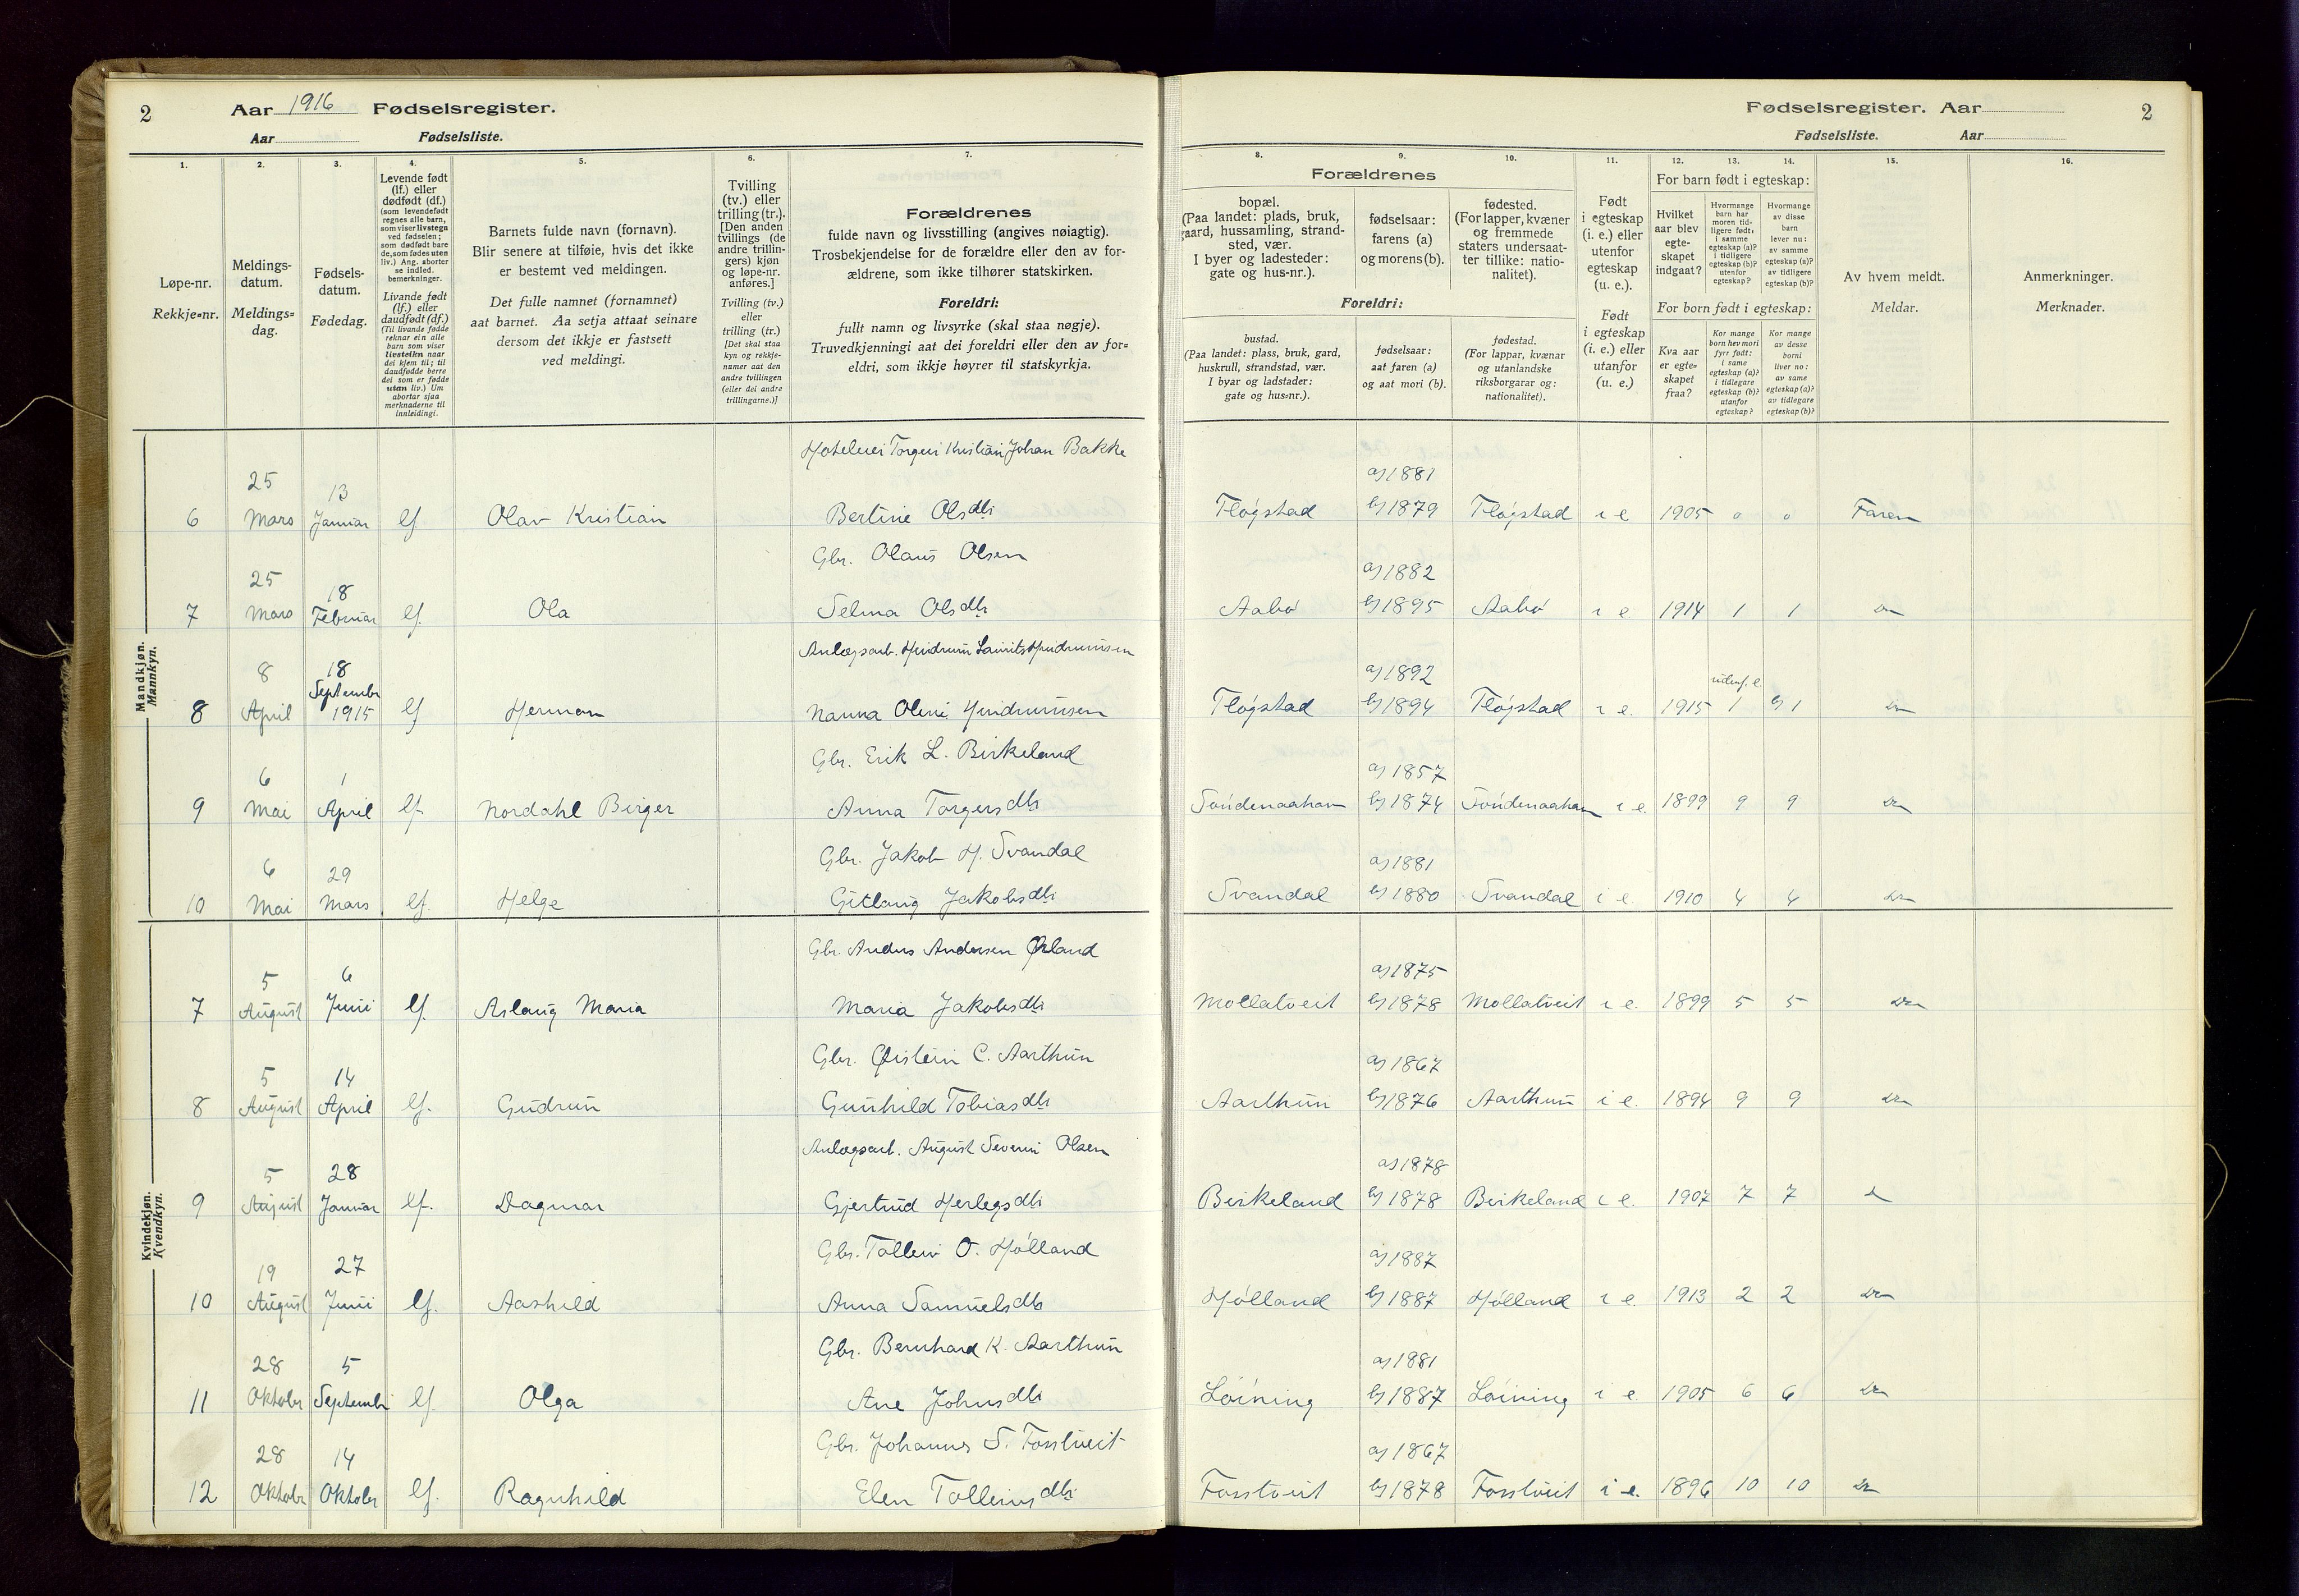 2 Aar 1916 Fødselsregister.
Aar Fødselsliste.
Fødselsregister. Aar 2
Fødselsliste. Aar
1. 2. 3. 4. 5. 6. 7. 8. 9. 10. 11. 12. 13. 14. 15. 16.
Løpe-nr.
Rekkje-nr.
Meldings-
datum.
Meldings-
dag.
Fødsels-
datum.
Fødedag.
Levende født
(lf.) eller
dødfødt (df.)
(som levendefødt
regnes alle barn,
som viser livstegn
ved fødselen;
som dødfødt bare
de, som fødes uten
liv.) Ang. aborter
se indled.
bemerkninger.
Livande født
(lf.) eller
daudfødt (df.)
(Til livande fødde
reknar ein alle
barn som viser
livsteikn naar
dei kjem til; til
daudfødde berre
dei som er fødde
utan liv.) Um
abortar sjaa
merknaderne til
innleidingi.
Barnets fulde navn (fornavn).
Blir senere at tilføie, hvis det ikke
er bestemt ved meldingen.
Det fulle namnet (fornamnet)
aat barnet. Aa setja attaat seinare
dersom det ikkje er fastsett
ved meldingi.
Tvilling
(tv.) eller
trilling (tr.).
[Den anden
tvillings (de
andre trillin-
gers) kjøn
og løpe-nr.
anføres.]
Tvilling (tv.)
eller
trilling (tr.)
[Det skal staa
kyn og rekkje-
numer aat den
andre tvillingen
(eller dei andre
trillingarne.)]
Forældrenes
fulde navn og livsstilling (angives nøiagtig).
Trosbekjendelse for de forældre eller den av for-
ældrene, som ikke tilhører statskirken.
Foreldri:
fullt namn og livsyrke (skal staa nøgje).
Truvedkjenningi aat dei foreldri eller den av for-
eldri, som ikkje høyrer til statskyrkja.
Forældrenes
bopæl.
(Paa landet: plads, bruk,
gaard, hussamling, strand-
sted, vær.
I byer og ladesteder:
gate og hus-nr.).
fødselsaar:
farens (a)
og morens (b).
fødested.
(For lapper, kvæner
og fremmede
staters undersaat-
ter tillike: natio-
nalitet).
Foreldri:
bustad.
(Paa landet: plass, bruk, gard,
huskrull, strandstad, vær.
I byar og ladstader:
gate og hus-nr.).
fødselsaar:
aat faren (a)
og aat mori (b).
fødestad.
(For lappar, kvænar
og utanlandske
riksborgarar og:
nationalitet).
Født
i egteskap
(i. e.) eller
utenfor
egteskap
(u. e.).
Født
i egteskap
(i. e.) eller
utanfor
(u. e.)
For barn født i egteskap:
Hvilket
aar blev
egte-
skapet
indgaat?
Hvormange
barn har
moren tid-
ligere født:
i samme
egteskap (a)?
i tidligere
egteskap (b)?
utenfor
egteskap?
Hvormange
av disse
barn
lever nu:
av samme
egteskap (a)?
av tidligere
egteskap (b)?
For born født i egteskap:
Kva aar
er egte-
skapet
fraa?
Kor mange
born hev mori
fyrr født:
i same
egteskap (a)?
i tidlegare
egteskap (b)?
utanfor
egteskap?
Kor mange
av desse
borni
liver no:
av same
egteskap (a)?
av tidlegare
egteskap (b)?
Av hvem meldt.
Meldar.
Anmerkninger.
Merknader.
Mandkjøn.
Mannkyn.
Torgeir Kristian Johan Bakke a) 1881
25 13
6 Mars Januar lf. Olav Kristian Bertine Olsdtr Fløgstad b) 1879 Fløgstad i e 1905 0 0 Faren
Gbr. Olaus Olsen a) 1882
25 18
7 Mars Februar lf. Ola Selma Olsdtr Aabø b) 1895 Aabø i e. 1914 1 1 Do
Anlægsarb. a) 1892
8 18 September
8 April 1915 lf Herman Nanna Fløgstad b) 1894 Fløgstad i e. 1915 utenf. e. 1 b) 1 Do
Gbr. Erik L. Birkeland a) 1857
6 1
9 Mai April lf. Nordahl Birger Anna Torgersdtr b) 1874 i e. 1899 9 9 Do
Gbr. Jakob H. Svandal a) 1881
6 29
10 Mai Mars lf. Helge Gitlaug Jakobsdtr Svandal b) 1880 Svandal i e. 1910 4 4 Do
Kvindekjøn.
Kvendkyn.
Gbr. Anders Andersen Ørland a) 1875
5 6
7 August Juni lf. Aslaug Maria Maria Jakobsdtr Mollatveit b) 1878 Mollatveit i e. 1899 5 5 Do
Gbr. Øistein C. Aarthun a) 1867
5 14
8 August April lf. Gudrun Gunhild Tobiasdtr Aarthun b) 1876 Aarthun i e. 1894 9 9 Do
Anlægsarb. August Severin Olsen a) 1878
5 28
9 August Januar lf. Dagmar Gjertrud Herlegsdtr Birkeland b) 1878 Birkeland i e. 1907 7 7 Do
Gbr. Tollein O. Hølland a) 1887
19 27
10 August Juni lf. Aashild Anna Samuelsdtr Hølland b) 1887 Hølland i e. 1913 2 2 Do
Gbr. Bernhard K. Aarthun a) 1881
28 5
11 Oktober September lf. Olga Ane Johnsdtr Løining b) 1887 Løining i e. 1905 6 6 Do
Gbr. Johannes S. Fosstveit a) 1867
28 14
12 Oktober Oktober lf. Ragnhild Elen Tolleinsdtr Fosstveit b) 1878 Fosstveit i e. 1896 10 10 Do